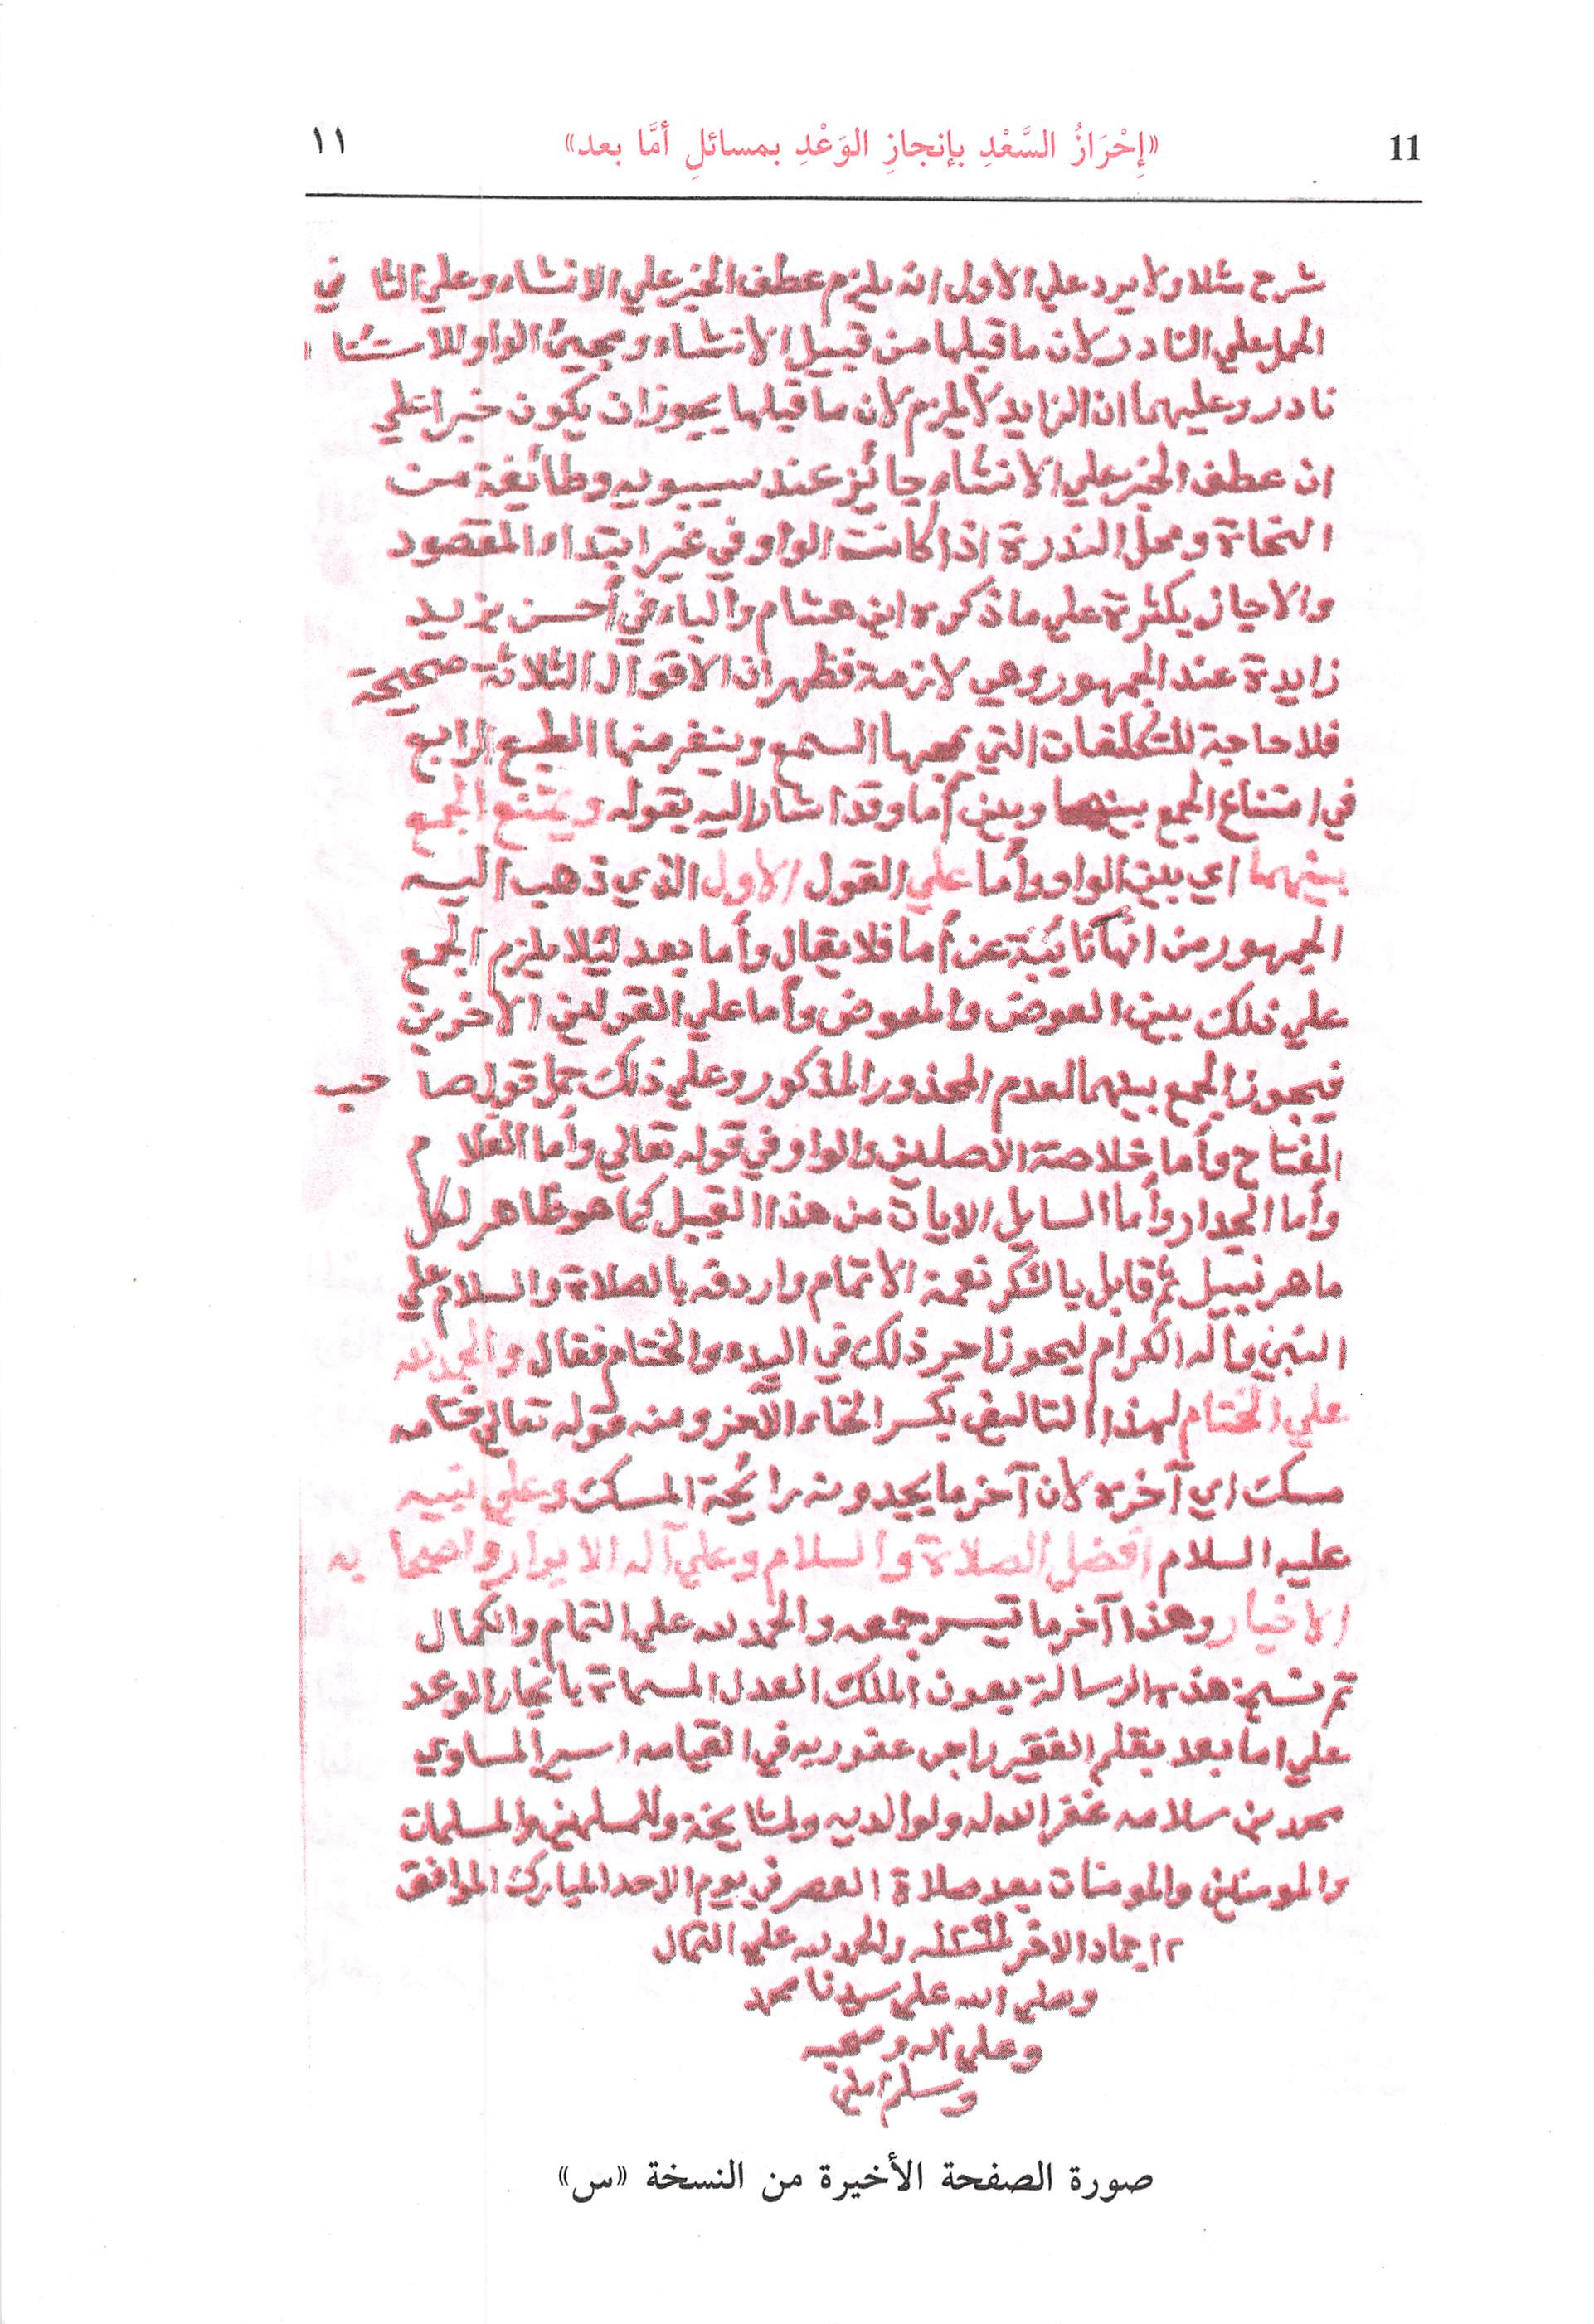 11 «إِحْرَازُ السَّعْدِ بإنجازِ الوَعْدِ بمسائلِ أمَّا بعد» ١١
شرح مثلا ولا يرد علي الاول انه يلزم عطف الخبر علي الانشاء وعلي الثا ني
الحمل علي النادر لان ما قبلها من قبيل الانشاء ومجيئ الواو للاستئنا
نادر وعليهما ان الزايد لا يلزم لان ما قبلها يجوز ان يكون خبرا علي
ان عطف الخبر علي الانشاء جائز عند سيبويه وطائفة من
النحاة ومحل الندرة اذا كانت الواو في غير ابتداء المقصود
والا جاز بكثرة علي ما ذكره ابن هشام والباء في أحسن بزيد
زايدة عند الجمهور وهي لازمة فظهر ان الاقوال الثلاثة صحيحة
فلا حاجة للتكلفات التي يمجها السمع وينفر منها الطبع الرابع
في امتناع الجمع بينها وبين أما وقد اشار اليه بقوله ويمتنع الجمع
بينهما اي بين الواو وأما علي القول الاول الذي ذهب اليه
الجمهور من انها نايبة عن أما فلا يقال وأما بعد لئلا يلزم الجمع
علي ذلك بين العوض والمعوض وأما علي القولين الآخرين
فيجوز الجمع بينهما لعدم المحذور المذكور وعلي ذلك حمل قول صا حب
المفتاح وأما خلاصة الأصلين والواو في قوله تعالي وأما الغلا م
وأما الجدار وأما السايل الايات من هذا القبيل كما هو ظاهر لكل
ماهر نبيل ثم قابل بالشكر نعمة الاتمام واردفه بالصلاة والسلام علي
النبي وآله الكرام ليحوز اجر ذلك في البدء والختام فقال والحمد لله
علي الختام لهذا التاليف بكسر الخاء الآخر ومنه قوله تعالي ختامه
مسك اي آخره لان آخر ما يجدونه رائحة المسك وعلي نبيه
عليه السلام أفضل الصلاة والسلام وعلي آله الابرار واصحا به
الاخيار وهذا آخر ما تيسر جمعه والحمد لله علي التمام والكمال
تم نسخ هذه الرسالة بعون الملك العدل المسماة بانجاز الوعد
علي اما بعد بقلم الفقير راجى عفو ربه في القيامه اسير المساوي
محمد بن سلامه غفر الله له ولوالديه ولمشايخة وللمسلمين والمسلمات
والمومنين والمومنات بعد صلاة العصر في يوم الاحد المبارك الموافق
١٢ جماد الاخر والحمد لله علي الكمال
وصلي الله علي سيدنا محمد
وعلي اله وصحبه
وسلم امين
صورة الصفحة الأخيرة من النسخة «س»